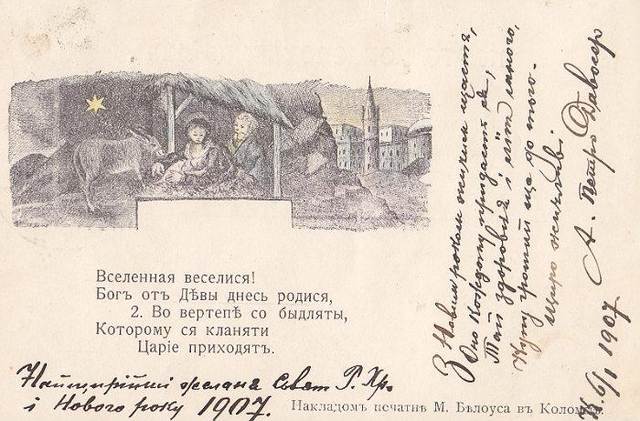 Вселенная веселися!
Богъ отъ Дѣвы днесь родися,
2. Во вертепѣ со быдляты,
Которому ся кланяти
Царіе приходятъ.
Найщирійші желаня Свят Р. Хр.
і Нового року 1907.
Накладомъ печатнѣ М. Бѣлоуса въ Коломыѣ.
З Новим роком зичим щастя,
Оно кождому придасть ся,
Тай здоровля і літ много,
Купу грошей ще до того.
Щиро жичливі
А. Петро
6/I 1907